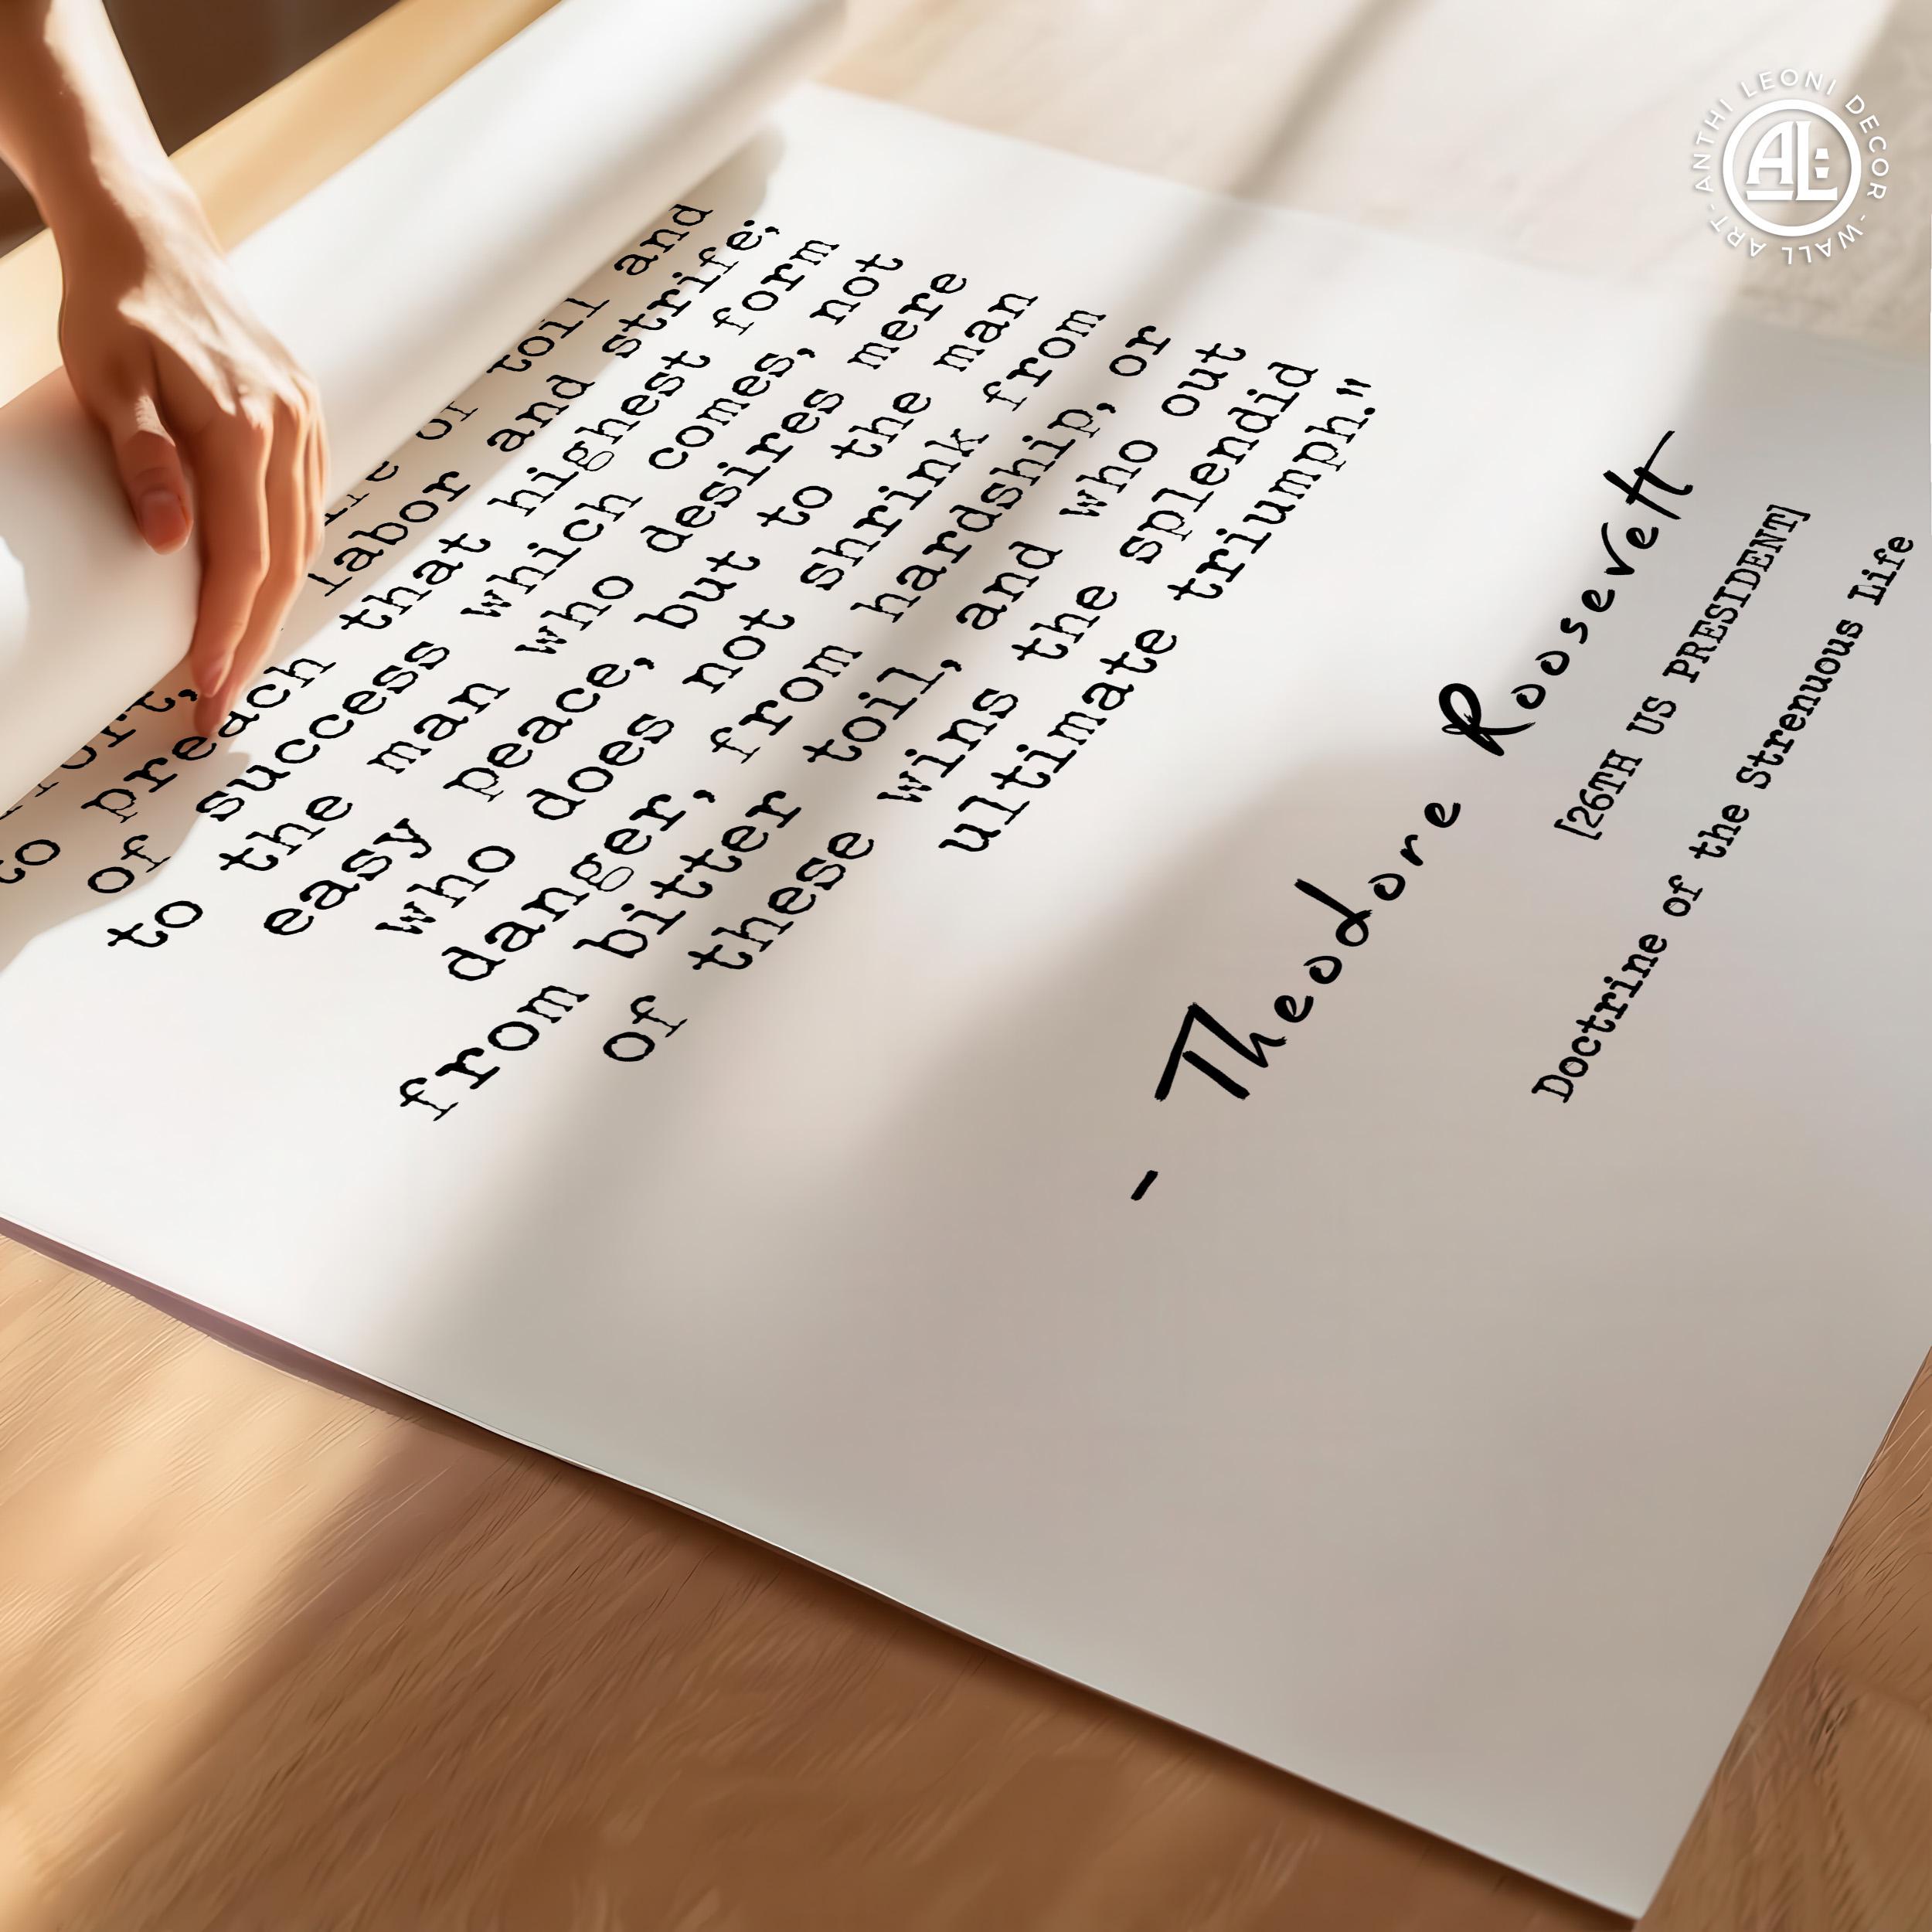 of toil and
labor and strife;
to preach that highest form
of success which comes, not
to the man who desires mere
easy peace, but to the man
who does not shrink from
danger, from hardship, or
from bitter toil, and who out
of these wins the splendid
ultimate triumph."
- Theodore Roosevelt
[26TH US PRESIDENT]
Doctrine of the Strenuous Life
ANTHI LEONI DECOR - WALL ART -
AL